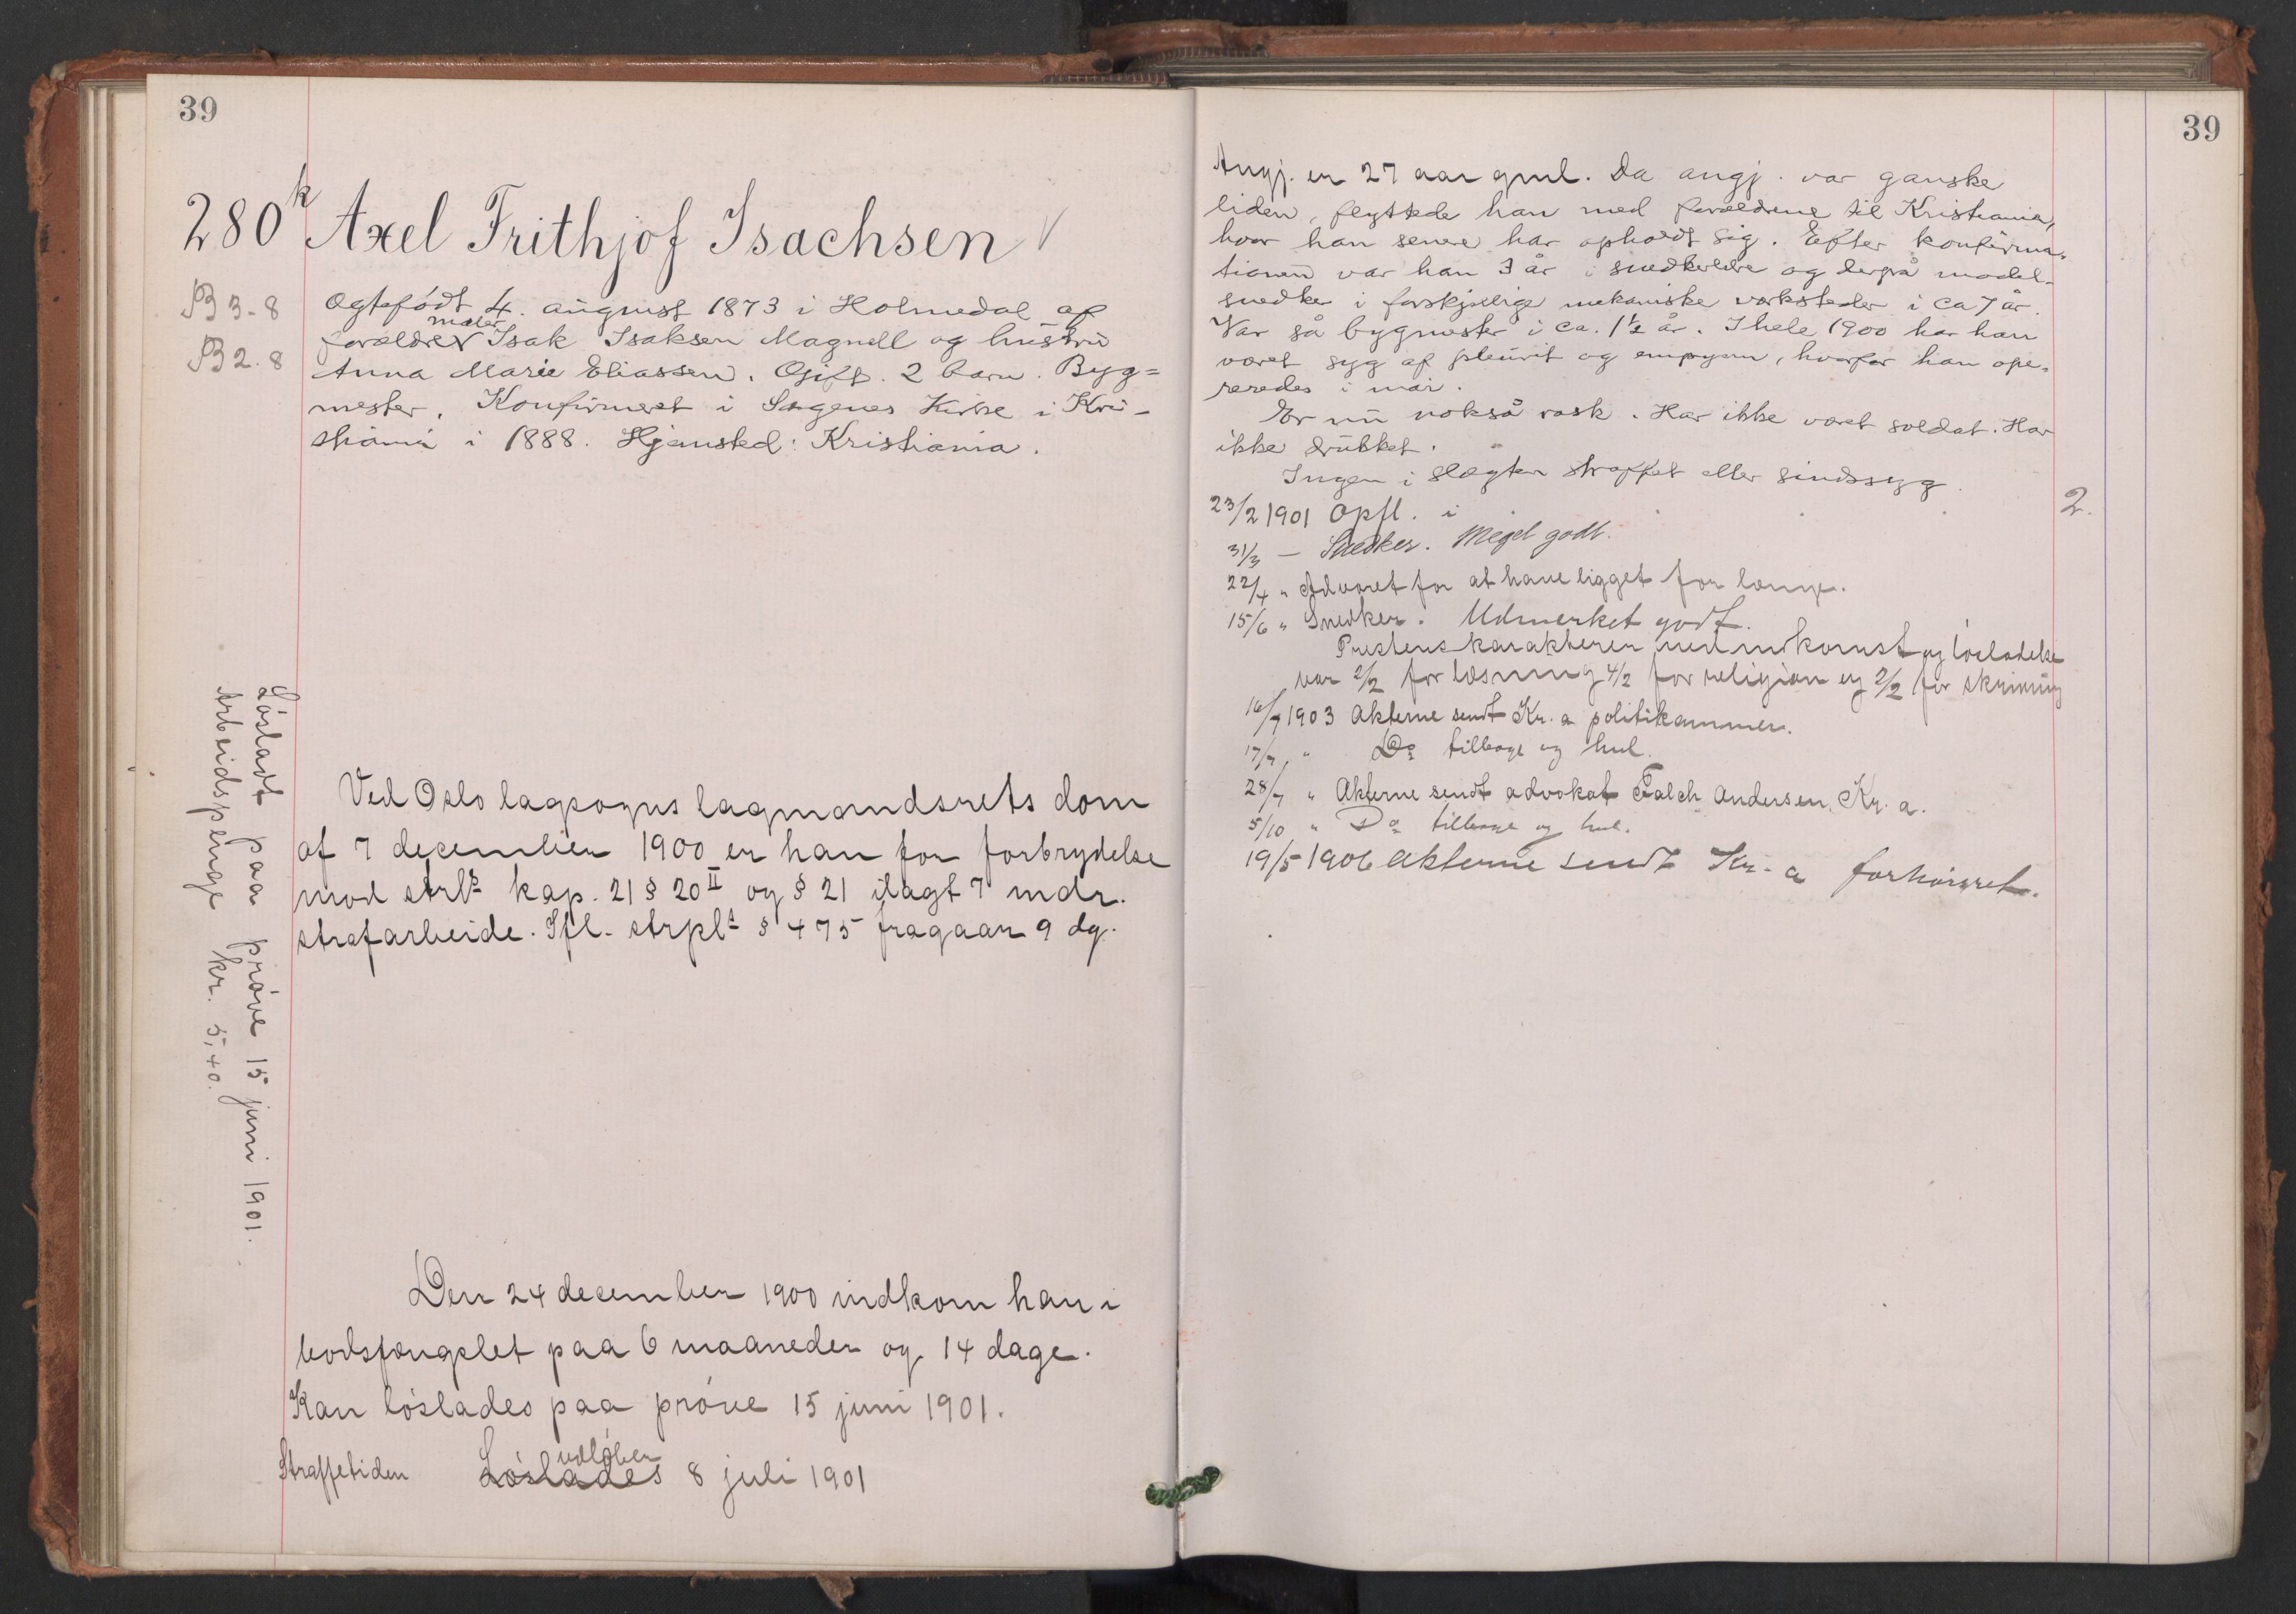 39
280k Axel Frithjof Isachsen √
B 3-8
B 2.8
Ogtefödt 4. august 1873 i Holmedal af
forældre maler Isak Isaksen Magnell og hustru
Anna Marie Eliassen. Gift. 2 barn. Byg=
mester. Konfirmeret i Sagenes Kirke i Kri-
stiania i 1888. Hjemsted: Kristiania.
Ved Oslo lagsogns lagmandsrets dom
af 7 december 1900 er han for forbrydelse
mod strls kap. 21 § 20 II og § 21 ilagt 7 mdr.
strafarbeide. Ifl. strpls § 475 fragaar 9 dg.
Den 24 december 1900 indkom han i
bodsfængslet paa 6 maaneder og 14 dage.
Kan löslades paa pröve 15 juni 1901.
Straffetiden Löslades udlöber 8 juli 1901
Lösladt paa pröve 15 juni 1901.
Arbeidspenge kr. 5,40.
39
Angj. er 27 aar gml. Da angj. var ganske
liden, flyttede han med forældrene til Kristiania,
hvor han senere har opholdt sig. Efter konfirma-
tionen var han 3 år i snedkerlære og derpå model-
snedker i forskjellige mekaniske værksteder i ca 7 år.
Var så bygmester i ca. 1½ år. I hele 1900 har han
været syg af pleurit og empyem, hvorfor han ope-
reredes i mai.
Er nu nokså rask. Har ikke været soldat. Har
ikke drukket.
Ingen i slægten straffet eller sindssyg.
23/2 1901 Opfl. i 2.
31/3 — Snedker. Meget godt.
22/4 " Advaret for at have ligget for længe.
15/6 " Snedker. Udmerket godt.
Prestens karakterer ved indkomst og lösladelse
var 2/2 for læsning 4/2 for religion og 2/2 for skrivning
16/7 1903 Akterne sendt Kr. a politikammer.
17/7 " Do tilbage og hul.
28/7 " Akterne sendt advokat Falch Andersen, Kr. a.
5/10 " Do tilbage og hul.
19/5 1906 Akterne sendt Kr. a forhörsret.